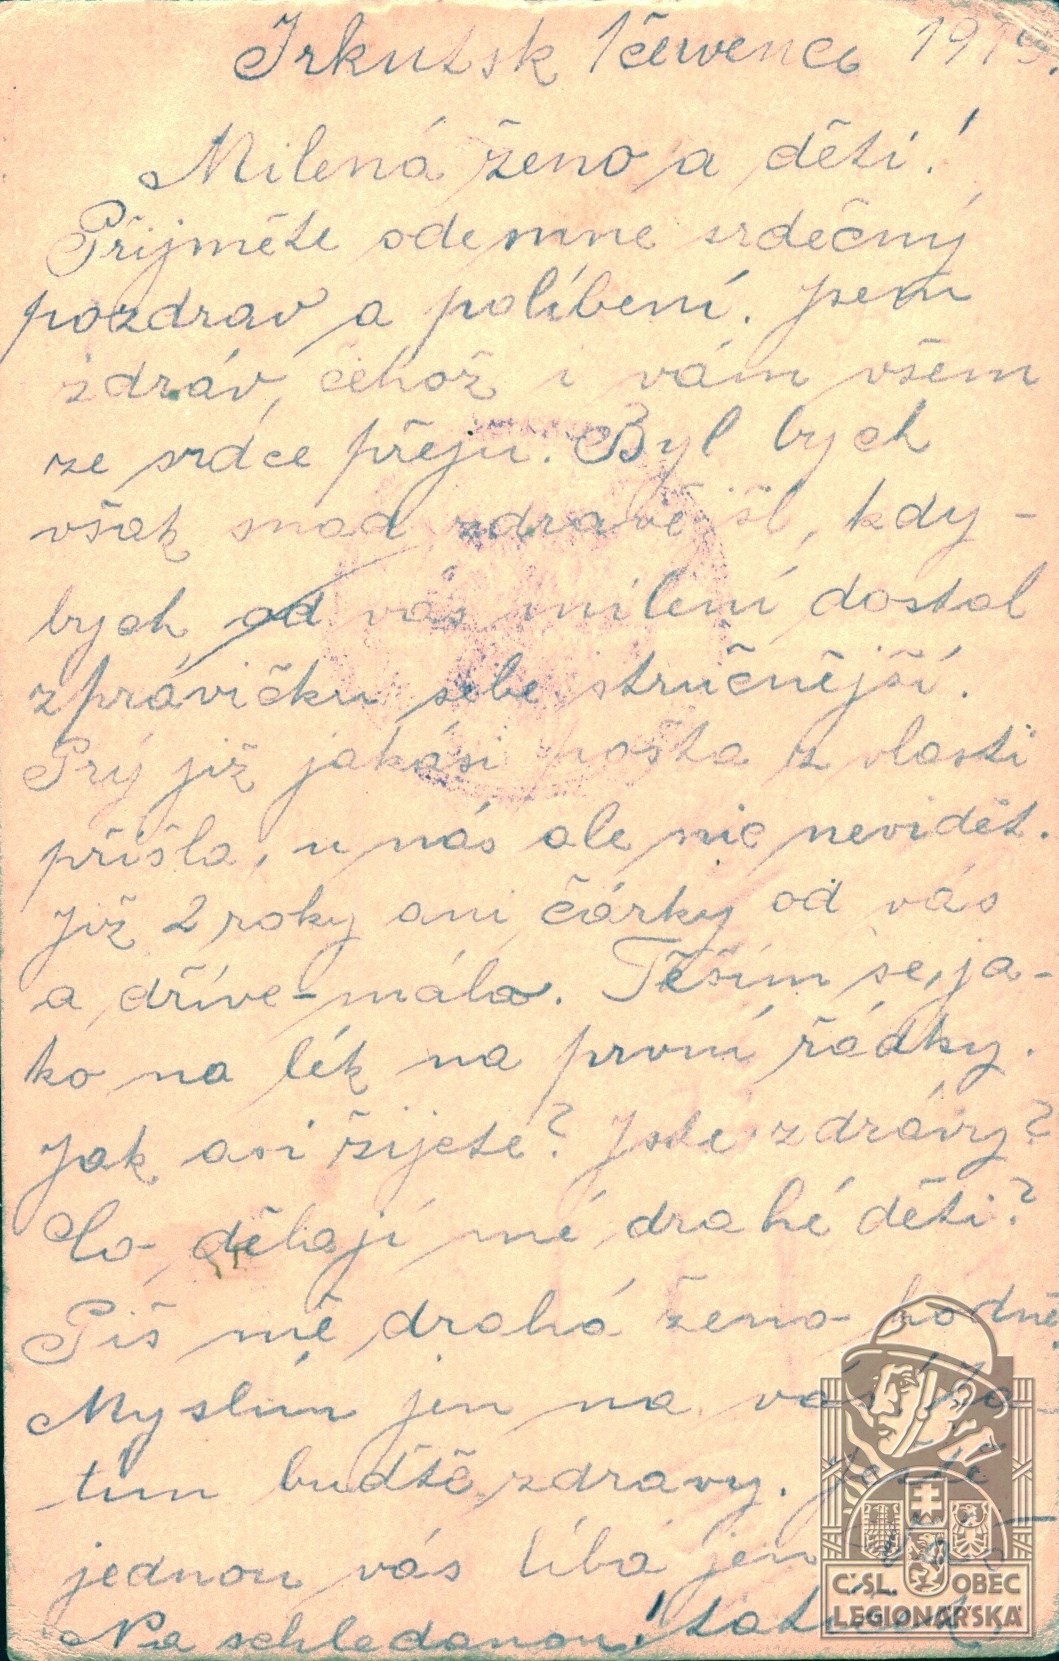 Irkutsk 1 července 1919.
Milená ženo a děti!
Přijměte odemne srdečný
pozdrav a políbení. Jsem
zdráv, čehož i vám všem
ze srdce přeju. Byl bych
však snad zdravější, kdy-
bych od vás milení dostal
zprávičku sebe stručnější.
Prý již jakási pošta z vlasti
přišla, u nás ale nic nevidět.
Již 2 roky ani čárky od vás
a dříve-málo. Těším se, ja-
ko na lék na první řádky.
Jak asi žijete? Jste zdrávy?
Co dělají mé drahé děti?
Piš mě drahá ženo hodně.
Myslím jen na vás. Za-
tím buďtě zdravy. Ještě
jednou vás líbá jen Váš
Na schledanou! tatínek.
ČSL. OBEC
LEGIONÁŘSKÁ